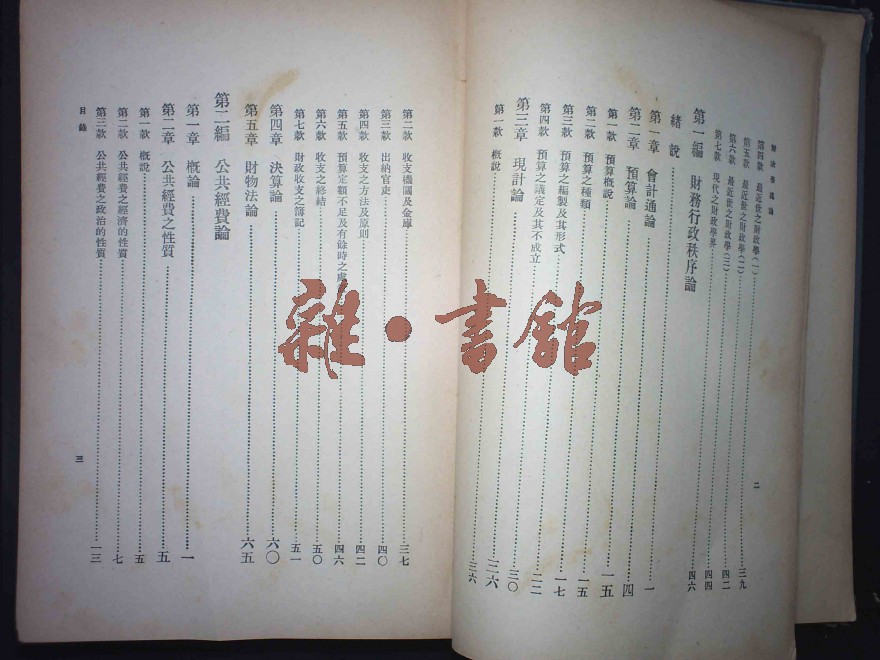 二
第四款 最近世之財政學(一)……三九
第五款 最近世之財政學(二)……四二
第六款 最近世之財政學(三)……四四
第七款 現代之財政學界……四六
第一編 財務行政秩序論
緒說……一
第一章 會計通論……四
第二章 預算論……一五
第一款 預算概說……一五
第二款 預算之種類……一七
第三款 預算之編製及其形式……二二
第四款 預算之議定及其不成立……三〇
第三章 現計論……三六
第一款 概說……三六
第二款 收支機關及金庫……三七
第三款 出納官吏……四〇
第四款 收支之方法及原則……四二
第五款 預算定額不足及有餘時之處……四六
第六款 收支之終結……五〇
第七款 財政收支之簿記……五一
第四章 決算論……六〇
第五章 財物法論……六五
第二編 公共經費論
第一章 概論……一
第二章 公共經費之性質……五
第一款 概說……五
第二款 公共經費之經濟的性質……七
第三款 公共經費之政治的性質……一三
目錄
三
雜·書館